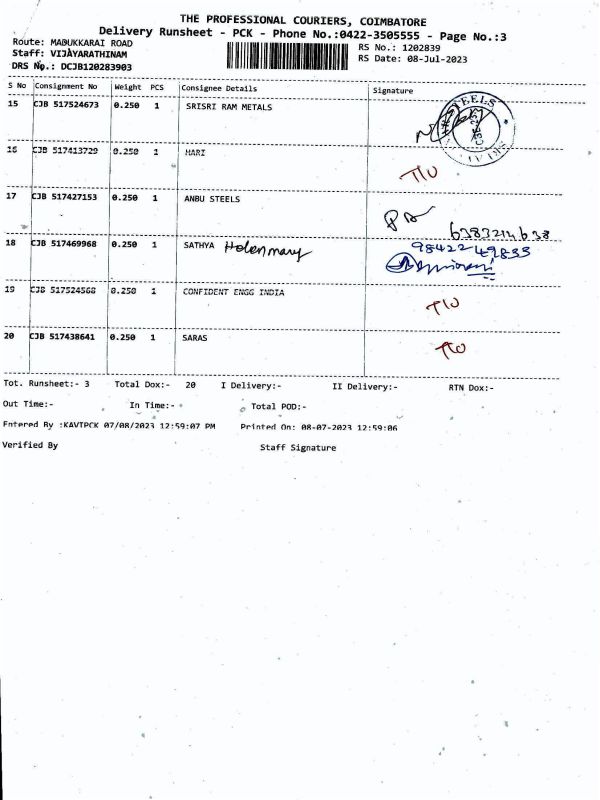 THE PROFESSIONAL COURIERS, COIMBATORE
Delivery Runsheet - PCK - Phone No.:0422-3505555 - Page No.:3
Route: MADUKKARAI ROAD RS No.: 1202839
Staff: VIJAYARATHINAM RS Date: 08-Jul-2023
DRS No.: DCJB120283903
S No Consignment No Weight PCS Consignee Details Signature
15 CJB 517524673 0.250 1 SRISRI RAM METALS
16 CJB 517413729 0.250 1 HARI
T/O
17 CJB 517427153 0.250 1 ANBU STEELS
6383214638
18 CJB 517469968 0.250 1 SATHYA Helenmary 9842249833
19 CJB 517524568 0.250 1 CONFIDENT ENGG INDIA
T/O
20 CJB 517438641 0.250 1 SARAS
T/O
Tot. Runsheet:- 3 Total Dox:- 20 I Delivery:- II Delivery:- RTN Dox:-
Out Time:- In Time:- Total POD:-
Entered By :KAVTPCK 07/08/2023 12:59:07 PM Printed On: 08-07-2023 12:59:06
Verified By Staff Signature